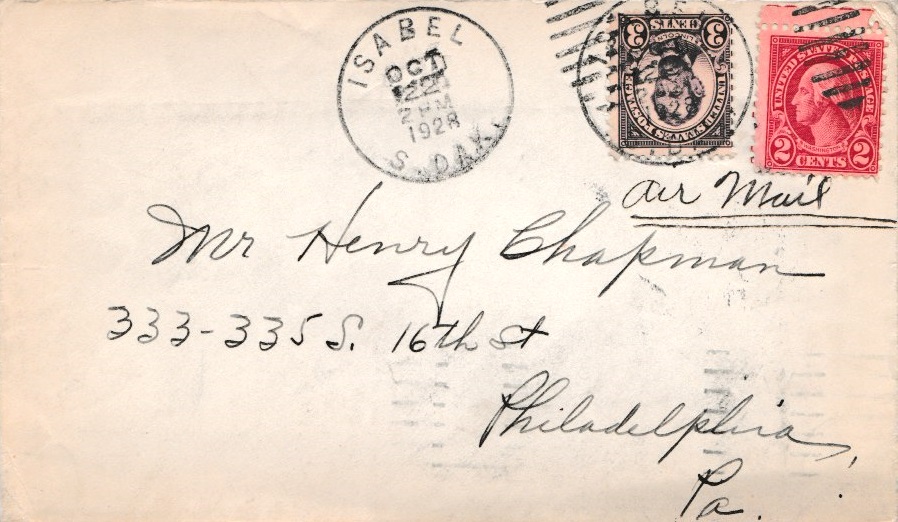 ISABEL
OCT
22
2 PM
1928
S. DAK.
3 CENTS 3
LINCOLN
UNITED STATES POSTAGE
UNITED STATES POSTAGE
WASHINGTON
2 CENTS 2
Air Mail
Mr Henry Chapman
333-335 S. 16th St
Philadelphia,
Pa.